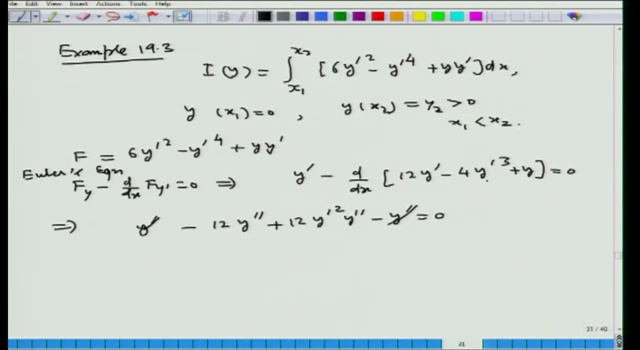 Edit View Insert Actions Tools Help
Example 19.3
I(y) = ∫_{x₁}^{x₂} [6y'² − y'⁴ + yy'] dx,
y(x₁) = 0, y(x₂) = y₂ > 0
x₁ < x₂.
F = 6y'² − y'⁴ + yy'
Euler's Eqn
F_y − d/dx F_y' = 0 ⇒ y' − d/dx [12y' − 4y'³ + y] = 0
⇒ y' − 12y'' + 12y'²y'' − y' = 0
31 / 40
31